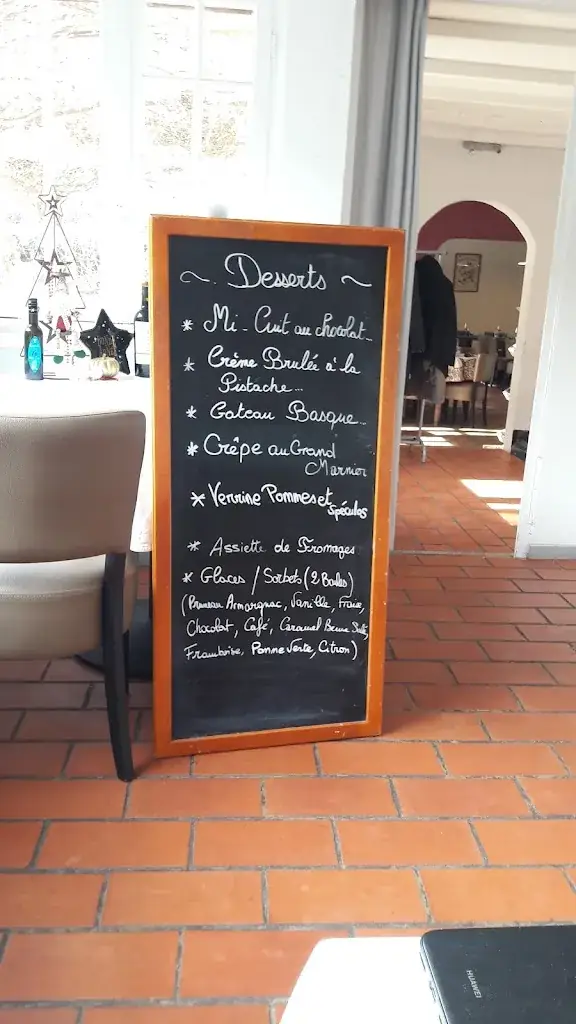 ~ Desserts ~
* Mi-Cuit au chocolat...
* Crème Brulée à la
Pistache...
* Gateau Basque...
* Crêpe au Grand
Marnier
* Verrine Pommes et
Spéculos
* Assiette de Fromages
* Glaces / Sorbets (2 Boules)
(Pruneau Armagnac, Vanille, Fraise,
Chocolat, Café, Caramel Beurre Salé,
Framboise, Pomme Verte, Citron)
HUAWEI